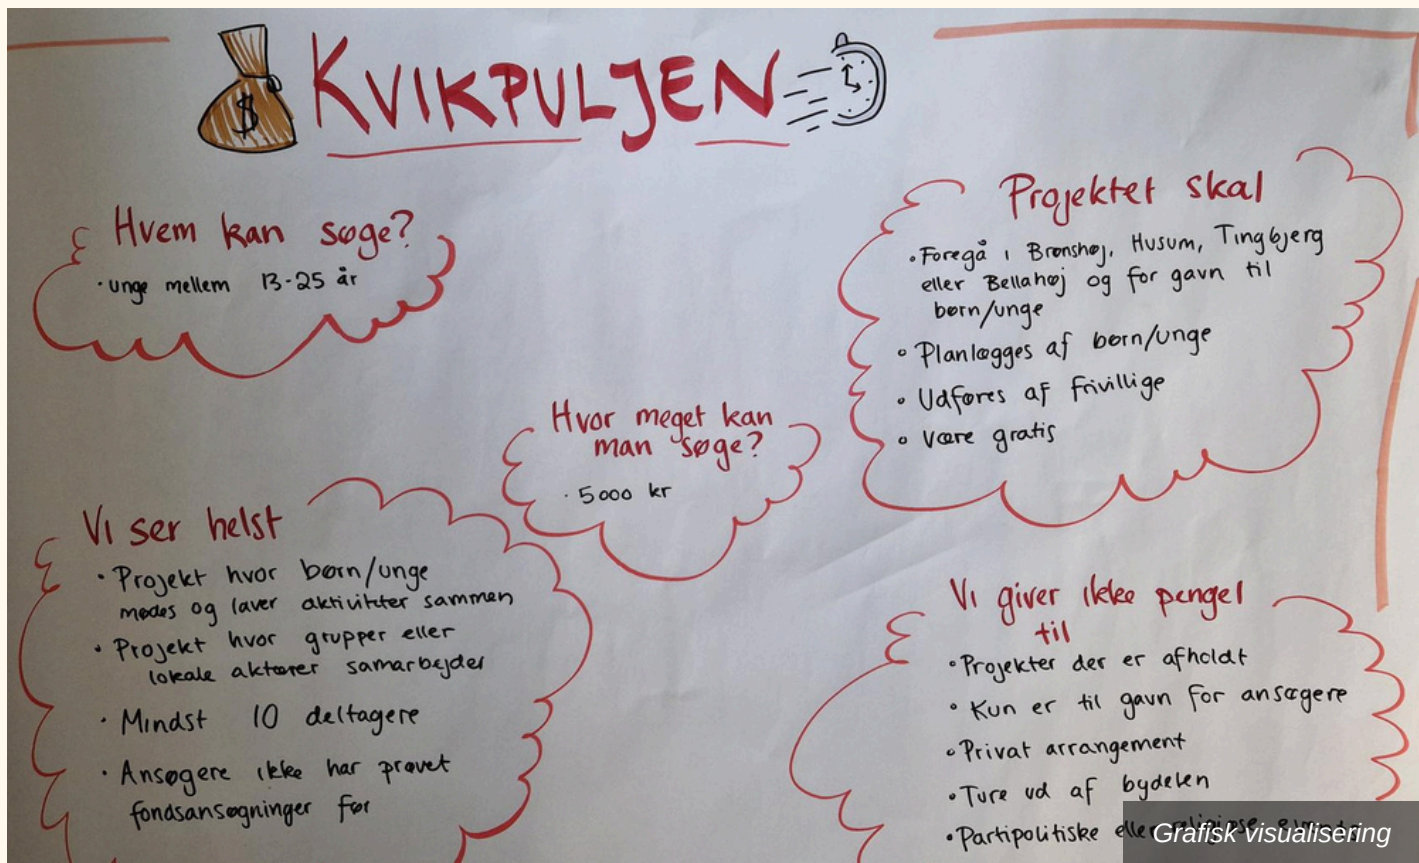 KVIKPULJEN
Hvem kan søge?
· unge mellem 13-25 år
Projektet skal
• Foregå i Brønshøj, Husum, Tingbjerg
eller Bellahøj og for gavn til
børn/unge
• Planlægges af børn/unge
• Udføres af frivillige
• være gratis
Hvor meget kan
man søge?
· 5000 kr
Vi ser helst
• Projekt hvor børn/unge
mødes og laver aktiviteter sammen
• Projekt hvor grupper eller
lokale aktører samarbejder
• Mindst 10 deltagere
• Ansøgere ikke har prøvet
fondsansøgninger før
Vi giver ikke penge
til
• Projekter der er afholdt
• Kun er til gavn for ansøgere
• Privat arrangement
• Ture ud af bydelen
• Partipolitiske eller religiøse
Grafisk visualisering